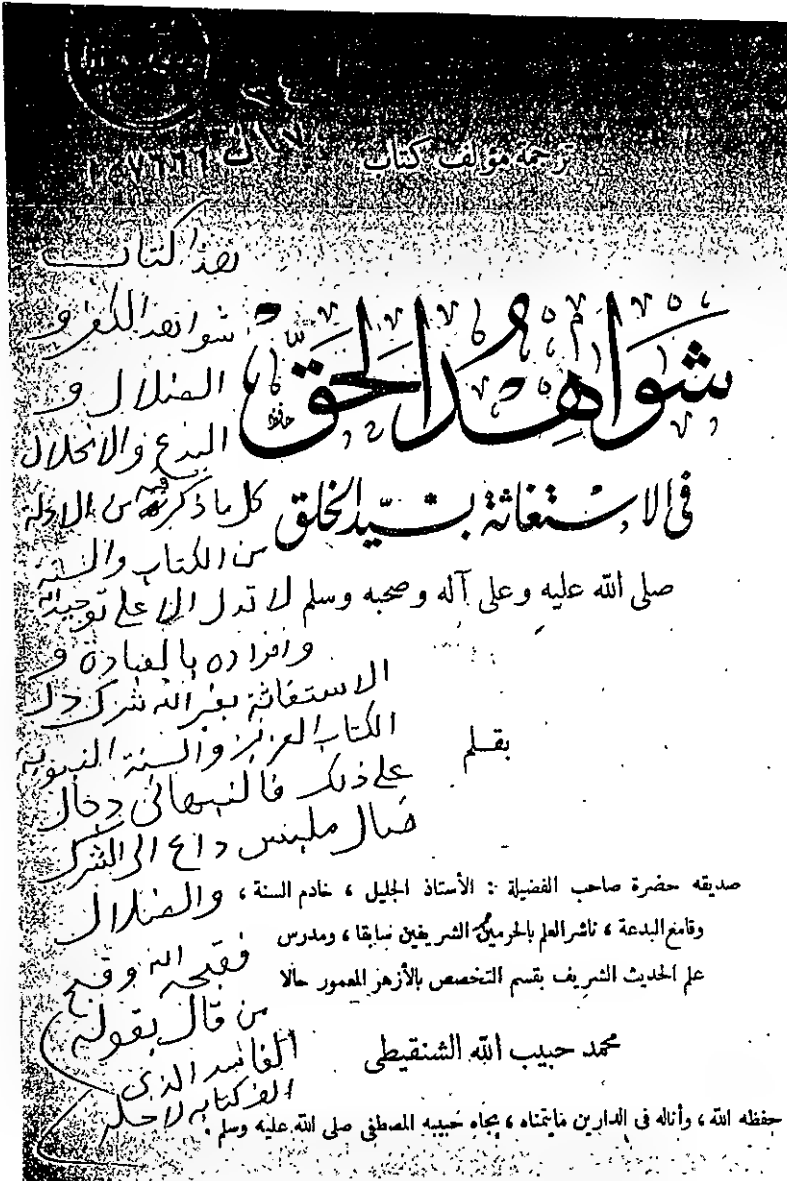 ١٧ ك
ترجمة مؤلف كتاب
شَوَاهِدُ الحَقِّ
فى الاسْتغاثة بسَيّد الخلق
صلى الله عليه وعلى آله وصحبه وسلم
بقلم
صديقه حضرة صاحب الفضيلة : الأستاذ الجليل ، خادم السنة ،
وقامع البدعة ، ناشر العلم بالحرمين الشريفين سابقا ، ومدرس
علم الحديث الشريف بقسم التخصص بالأزهر المعمور حالا
محمد حبيب الله الشنقيطى
حفظه الله ، وأناله فى الدارين مايتمناه ، بجاه حبيبه المصطفى صلى الله عليه وسلم .
هذا كتاب
شواهد الكفر و
الضلال و
البدع والانحلال
كل ما ذكر فيه من الادلة
من الكتاب والسنة
لا تدل الا على توحيد الله
وافراده بالعبادة و
الاستغاثة بغير الله شرك دل
الكتاب العزيز والسنة النبوية
على ذلك فالنبهانى دجال
ضال ملبس داع الى الشرك
والضلال
فقبحه الله وقبح
من قال بقوله
الفاسد الذى
الف كتابه لاجله